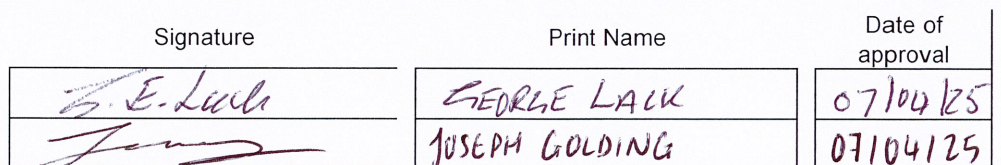 Signature Print Name Date of
approval
G. E. Lack GEORGE LACK 07/04/25
JOSEPH GOLDING 07/04/25